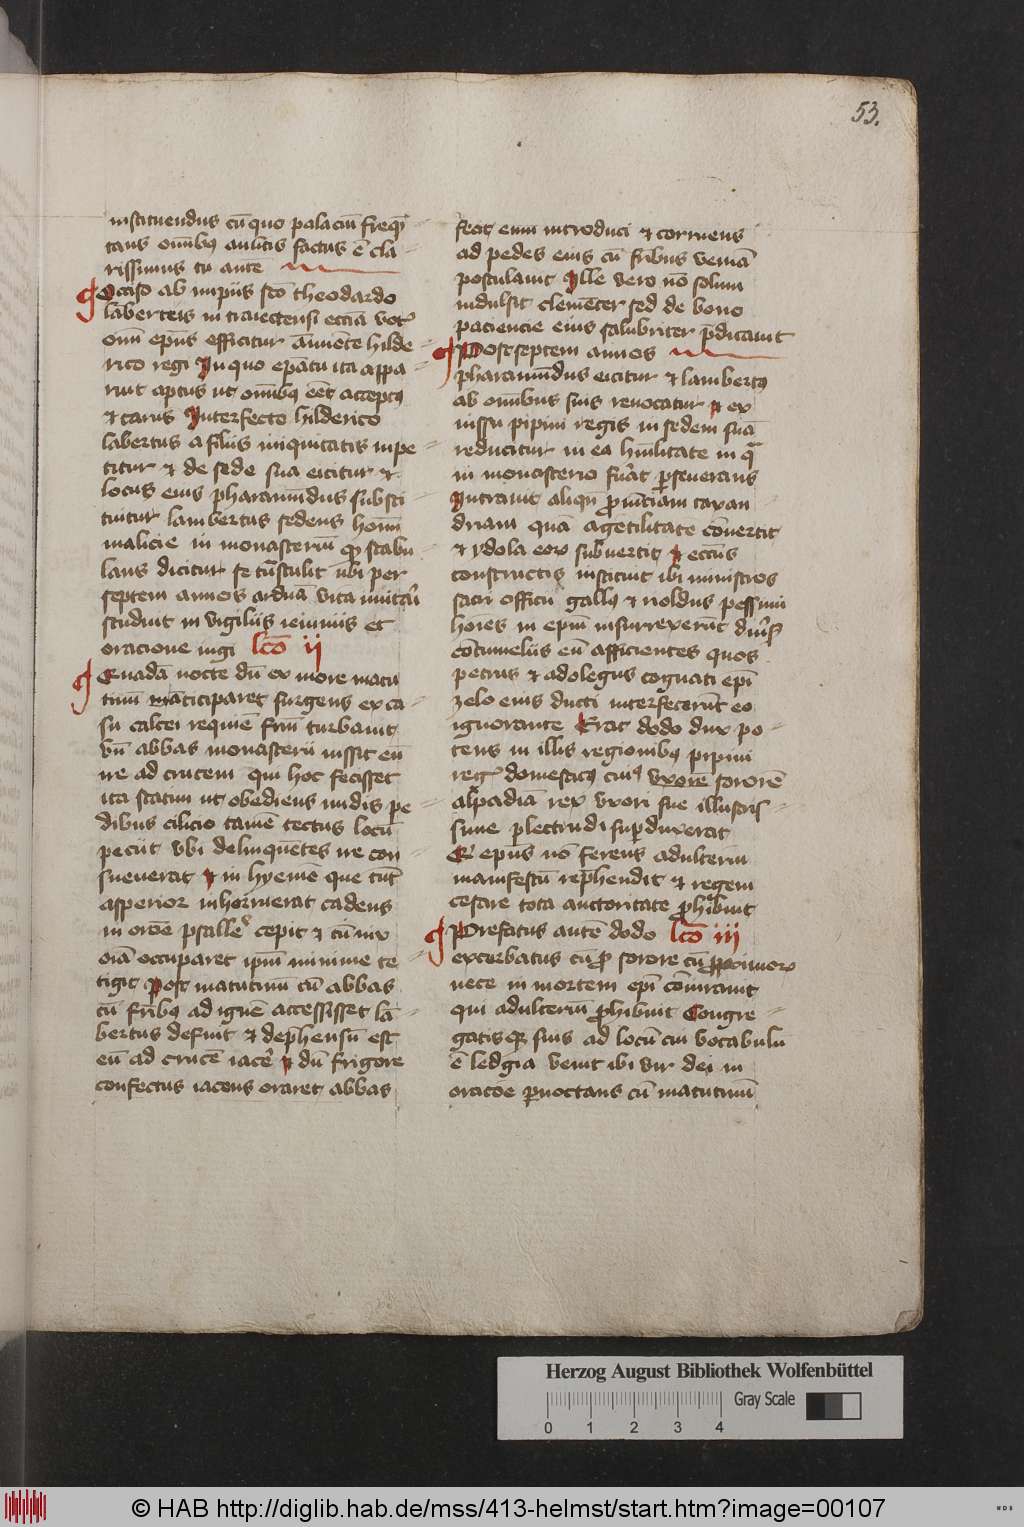 53.
instituendus cū quo palaciū freq̄
tans omībꝰ aulicis factus ē cla
rissimus tu aute
Occiso ab impiis sco theodardo
labertus in traiectensi eccīa
om̄ ep̄us efficitur ānuēte hilde
rico regi In quo ep̄atu ita appa
ruit aptus ut omībꝰ eēt acceptꝰ
& carus Interfecto hilderico
labertus a filiis iniquitatis inpe
titur & de sede sua eicitur &
locus eius pharamūdus substi
tuitur lambertus sedens
malicie in monasteriū qꝫ stabu
laus dicitur se trāstulit ubi per
septem annos ardua vita
studuit in vigiliis ieiuniis et
oracione iugi lc̄o ii
Quadā nocte dū ex more matu
tinū anticiparet surgens ex ca
su calcei requiē frm̄ turbauit
Vn̄ abbas monasterii iussit eū
ire ad crucem qui hoc fecisset
ita statim ut obediens nudis pe
dibus cilicio tamē tectus locū
peciit vbi delinquētes ire con
sueuerāt & in hyemē que tūc
asperior inhorruerat cadens
in oroē psallē cepit & cū nix
oīa occuparet ip̄m minime te
tigit Post matutinū cū abbas
cū frībꝰ ad ignē accessisset lā
bertus defuit & dephensū est
eū ad crucē iacē & dū frigore
confectus iacens oraret abbas
fecit eum introduci & corruens
ad pedes eius cū frībus veniā
postulauit Ille vero nō solum
indulsit clemēter sed de bono
paciencie eius salubriter p̄dicauit
Post septem annos
pharamūdus eicitur & lambertꝰ
ab omībus suis reuocatur & ex
iussu pipini regis in sedem suā
reducitur in ea hūilitate in qua
in monasterio fuāt perseuerans
Intrauit aliqn̄ prouīciam taxan
driam quā a gētilitate cōuertit
& ydola eoꝝ subuertit & eccīis
constructis instituit ibi ministros
sacri officii gallꝰ & rioldus pessimi
hoīes in epm̄ insurrexerūt
cōtumeliis eū afficientes quos
petrus & adolegus cognati epī
zelo eius ducti interfecerūt eo
ignorante Erat dodo dux po
tens in illis regionibꝰ pipini
domesticꝰ cuiꝰ vxorē sororē
alpadiā rex vxori sue illustris
sime plectrudi superduxerat
Et ep̄us nō ferens adulterii
manifestū rephendit & regem
cesare tota auctoritate prohibuit
Prefatus autē dodo lc̄o iii
exacerbatus cū pro sorore cū proximorꝝ
nece in mortem epī cōiurauit
qui adulteriū prohibuit Congre
gatisqꝫ suis ad locū cui vocabulū
ē ledgia venit ibi vir dei in
oracōe pernoctans cū matutinū
Herzog August Bibliothek Wolfenbüttel
Gray Scale
0 1 2 3 4
© HAB http://diglib.hab.de/mss/413-helmst/start.htm?image=00107